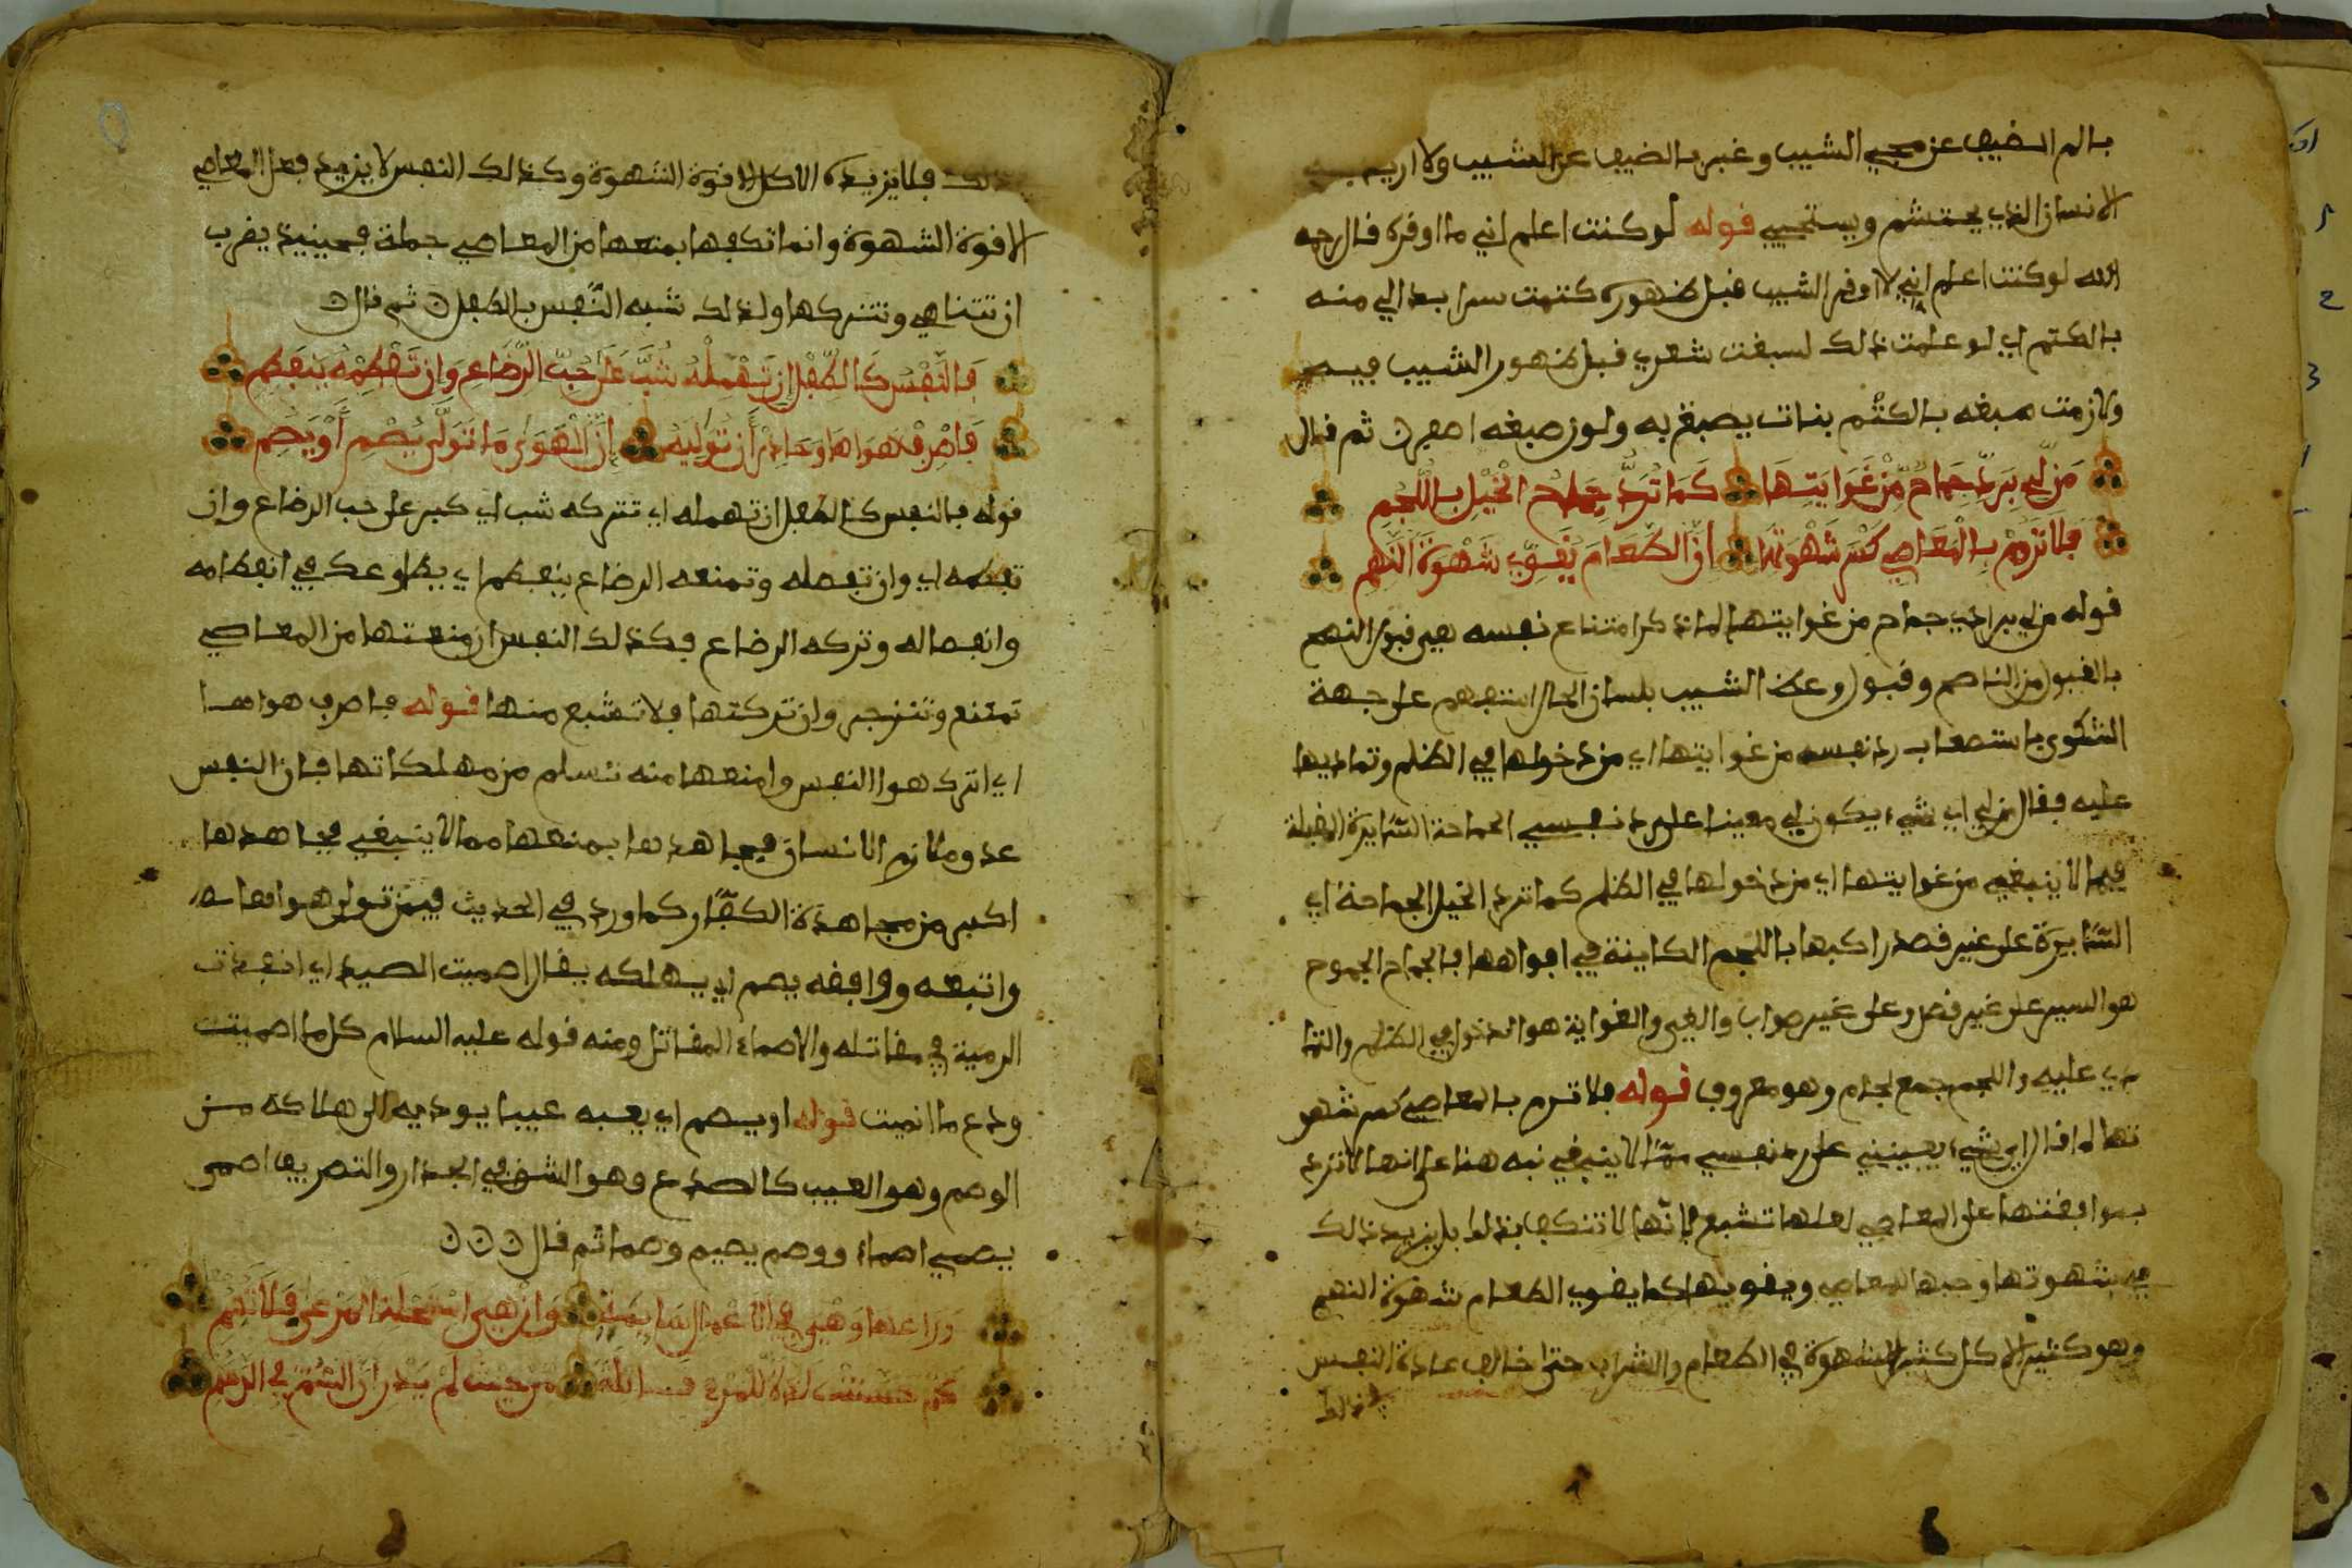 بالم الضيف عن مجيء الشيب وغير بالضيف عن الشيب ولا اريد به
الانسان الذي يحتشم ويستحيي قوله لو كنت اعلم اني ما اوقره قال رحمه
الله لو كنت اعلم اني لا اوقر الشيب قبل ظهوره كتمت سرا بدا لي منه
بالكتم اي لو علمت ذلك لسبقت شعري قبل ظهور الشيب فيه
ولازمت صبغه بالكتم بنات يصبغ به ولون صبغه اصفر ثم قال
مَن لِي بِرَدِّ جِمَاحٍ مِّنْ غَوَايَتِهَا كَمَا تُرَدُّ جِمَاحُ الْخَيْلِ بِاللُّجُمِ
فَلَا تَرُمْ بِالْمَعَاصِي كَسْرَ شَهْوَتِهَا اِنَّ الطَّعَامَ يُقَوِّي شَهْوَةَ النَّهِمِ
قوله من لي برد اي جماح من غوايتها لما ذكر امتناع نفسه عن قبول النصح
بالقبول من الناصح وقبول وعظ الشيب بلسان الحال استفهم على جهة
الشكوى باستصعاب رد نفسه من غوايتها اي من دخولها في الظلم وتماديها
عليه فقال من لي اي شيء يكون لي معينا على رد نفسي الجماحة السايرة المقبلة
فيما لا ينبغي من غوايتها اي من دخولها في الظلم كما ترد الخيل الجماحة اي
السّايرة على غير قصد راكبها باللجم الكاينة في افواهها فالجماح الجموح
هو السير على غير قصد وعلى غير صواب والغي والغواية هو الدخول في الظلم والتما
دي عليه واللجم جمع لجام وهو معروف قوله فلا ترم بالمعاصي كسر شهو
تها لما قال اي شيء يعينني على رد نفسي ممّا لا ينبغي نبه هنا على انها لا ترد
بموافقتها على المعاصي لعلها تشبع فانّها لا تنكف بذلك بل يزيد ذلك
في شهوتها وحبها للمعاصي ويقويها كما يقوي الطعام شهوة النهم
وهو كثير الاكل كثير الشهوة في الطعام والشراب حتى خالف عادة النفس
ذلك فلا يزيده الاكل الا قوة الشهوة وكذلك النفس لا يزيد فعل المعاصي
الا قوة الشهوة وانما تكفها بمنعها من المعاصي جملة فحينيذ يقرب
ان تتناهى وتتركها ولذلك شبه النّفس بالطفل ثم قال
فَالنَّفْسُ كَالطِّفْلِ إِن تُهْمِلْهُ شَبَّ عَلَى حُبِّ الرَّضَاعِ وَإِن تَفْطِمْهُ يَنفَطِمِ
فَاصْرِفْ هَوَاهَا وَحَاذِرْ أَن تُوَلِّيَهُ إِنَّ الْهَوَى مَا تَوَلَّى يُصْمِ أَوْ يَصِمِ
قوله فالنفس كالطفل ان تهمله اي تتركه شب اي كبر على حب الرضاع وان
تفطمه اي وان تفصله وتمنعه الرضاع ينفطم اي يطاوعك في انفطامه
وانفصاله وتركه الرضاع فكذلك النفس ان منعتها من المعاصي
تمتنع وتنزجر وان تركتها فلا تشبع منها قوله فاصرف هواها
اي اترك هوا النفس وامنعها منه تسلم من مهلكاتها فان النفس
عدو ملازم الانسان فيجاهدها بمنعها مما لا ينبغي فجاهدها
اكبر من مجاهدة الكفّار كما ورد في الحديث فيمن تولى هوا نفسه
واتبعه ووافقه يصم اي يهلكه يقال اصميت الصيد اي انفذت
الرمية في مقاتله والاصماء المقاتل ومنه قوله عليه السلام كل ما اصميت
ودع ما انميت قوله او يصم اي يعبه عيبا يوديه الى هلاكه من
الوصم وهو العيب كالصدع وهو الشق في الجدار والتصريف اصمى
يصمي اصماء ووصم يصيم وصما ثم قال
وَرَاعِهَا وَهْيَ فِي الاعْمَالِ سَايِمَةٌ وَإِنْ هِيَ اسْتَحْلَتِ الْمَرْعَى فَلَا تُسِمِ
كَمْ حَسَّنَتْ لَذَّةً لِلْمَرْءِ قَاتِلَةً مِنْ حَيْثُ لَمْ يَدْرِ أَنَّ السُّمَّ فِي الدَّسَمِ